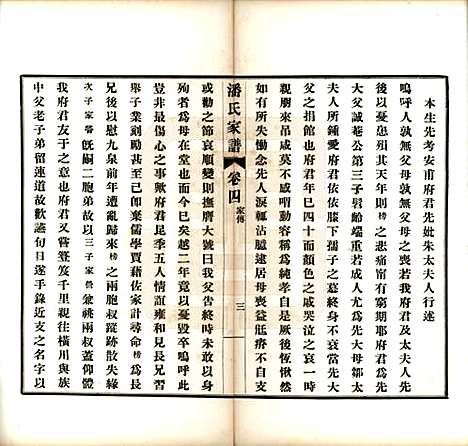 本生先考安甫府君先妣朱太夫人行述
嗚呼人孰無父母父母之喪若我府君及太夫人先
後以憂患殂不其天年則 榜 之悲痛甯有旣耶府君先
大父誠菴公第三子髫齡端重若成人尤爲先大母鄒太
夫人所鍾愛府君依依膝下孺子之慕終身不衰當先大
父之捐館也府君年已四十面顏色之戚哭泣之哀一時
親朋來弔咸莫不感喟動容稱爲純孝自是厥後恆愀然
如有所失慟念先人淚輒沾臆逮居母喪益尪瘠不任哀
潘氏家譜
卷四
家傳
三
或勸之節哀順變則撫膺大號曰我父吿終時所以不以身
殉者爲母在堂也而今已矣越二年竟以憂毀卒嗚呼此
豈非最慟心之事歟府君昆季五人情誼雍和見長兄習
舉子業刻勵甚成勸之棄儒習賈藉佐家計尋命 榜 爲長
兄後以慰九泉前年遭亂歸來 榜 之兩胞叔蹤跡散失緣
次子家 既嗣二胞弟故以三子家 兼祧兩叔蓋仰體
我府君友于之意也府君又嘗簦笈千里親往橫川與族
中父老子弟留連道故歡讌旬日遂手錄近支之名字以